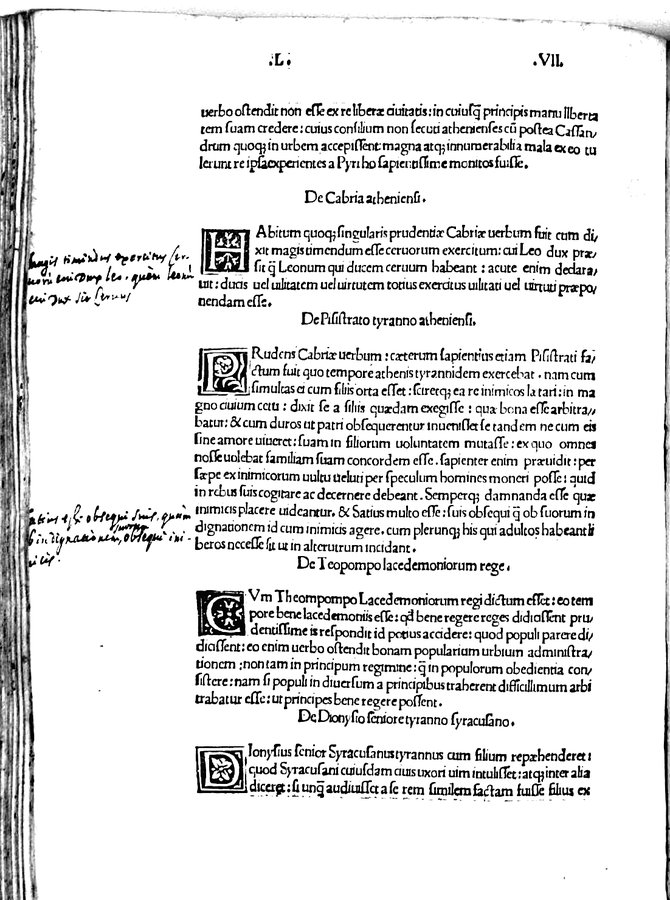 .L. .VII.
uerbo ostendit non esse ex re liberæ ciuitatis: in cuiusq̃ principis manu liberta
tem suam credere: cuius consilium non secuti athenienses cũ postea Cassan/
drum quoq; in urbem accepissent: magna atq; innumerabilia mala ex eo tu
lerunt re ipsa experientes a Pyrrho sapientissime monitos fuisse.
De Cabria atheniensi.
HAbitum quoq; singularis prudentiæ Cabriæ uerbum fuit cum di/
xit magis timendum esse ceruorum exercitum: cui Leo dux præ/
sit q̃ Leonum qui ducem ceruum habeant: acute enim declara/
uit: ducis uel uilitatem uel uirtutem totius exercitus uilitati uel uirtuti præpo/
nendam esse.
magis timendus exercitus Cer-
uorũ cui Dux Leo. quàm Leonũ
cui Dux sit Ceruus
De Pisistrato tyranno atheniensi.
PRudens Cabriæ uerbum: cæterum sapientius etiam Pisistrati fa/
ctum fuit quo tempore athenis tyrannidem exercebat. nam cum
simultas ei cum filiis orta esset: sciretq; ea re inimicos lætari: in ma
gno ciuium cetu: dixit se a filiis quædam exegisse: quæ bona esse arbitra//
batur: & cum duros ut patri obsequerentur inuenisset se tandem ne cum eis
sine amore uiueret: suam in filiorum uoluntatem mutasse: ex quo omnes
nosse uolebat familiam suam concordem esse. sapienter enim præuidit: per
sæpe ex inimicorum uultu ueluti per speculum homines moneri posse: quid
in rebus suis cogitare ac decernere debeant. Semperq; damnanda esse quæ
inimicis placere uideantur. & Satius multo esse: suis obsequi q̃ ob suorum in
dignationem id cum inimicis agere. cum plerunq; his qui adultos habeant li
beros necesse sit ut in alterutrum incidant.
satius esse obsequi suis. quàm
ob suorum indignationem, obsequi ini-
micis.
De Teopompo lacedemoniorum rege.
CVm Theompompo Lacedemoniorum regi dictum esset: eo tem
pore bene lacedemoniis esse: qđ bene regere reges didicissent pru/
dentissime is respondit id potius accidere: quod populi parere di/
dicissent: eo enim uerbo ostendit bonam popularium urbium administra/
tionem: non tam in principum regimine: q̃ in populorum obedientia con/
sistere: nam si populi in diuersum a principibus traherent difficillimum arbi
trabatur esse: ut principes bene regere possent.
De Dionysio seniore tyranno syracusano.
DIonysius senior Syracusanus tyrannus cum filium repræhenderet:
quod Syracusani cuiusdam ciuis uxori uim intulisset: atq; inter alia
diceret: si unq̃ audiuisset a se rem similem factam fuisse filius ex